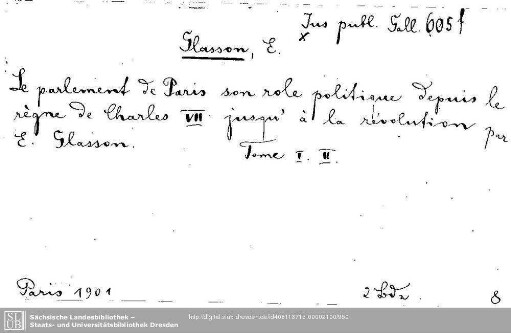 Jus publ. Gall. 605f
x
Glasson, E.
Le parlement de Paris son role politique depuis le
règne de Charles VII. jusqu' à la révolution par
E. Glasson.
Tome I. II.
Paris 1901
2 Bde.
8
SLUB
Sächsische Landesbibliothek –
Staats- und Universitätsbibliothek Dresden